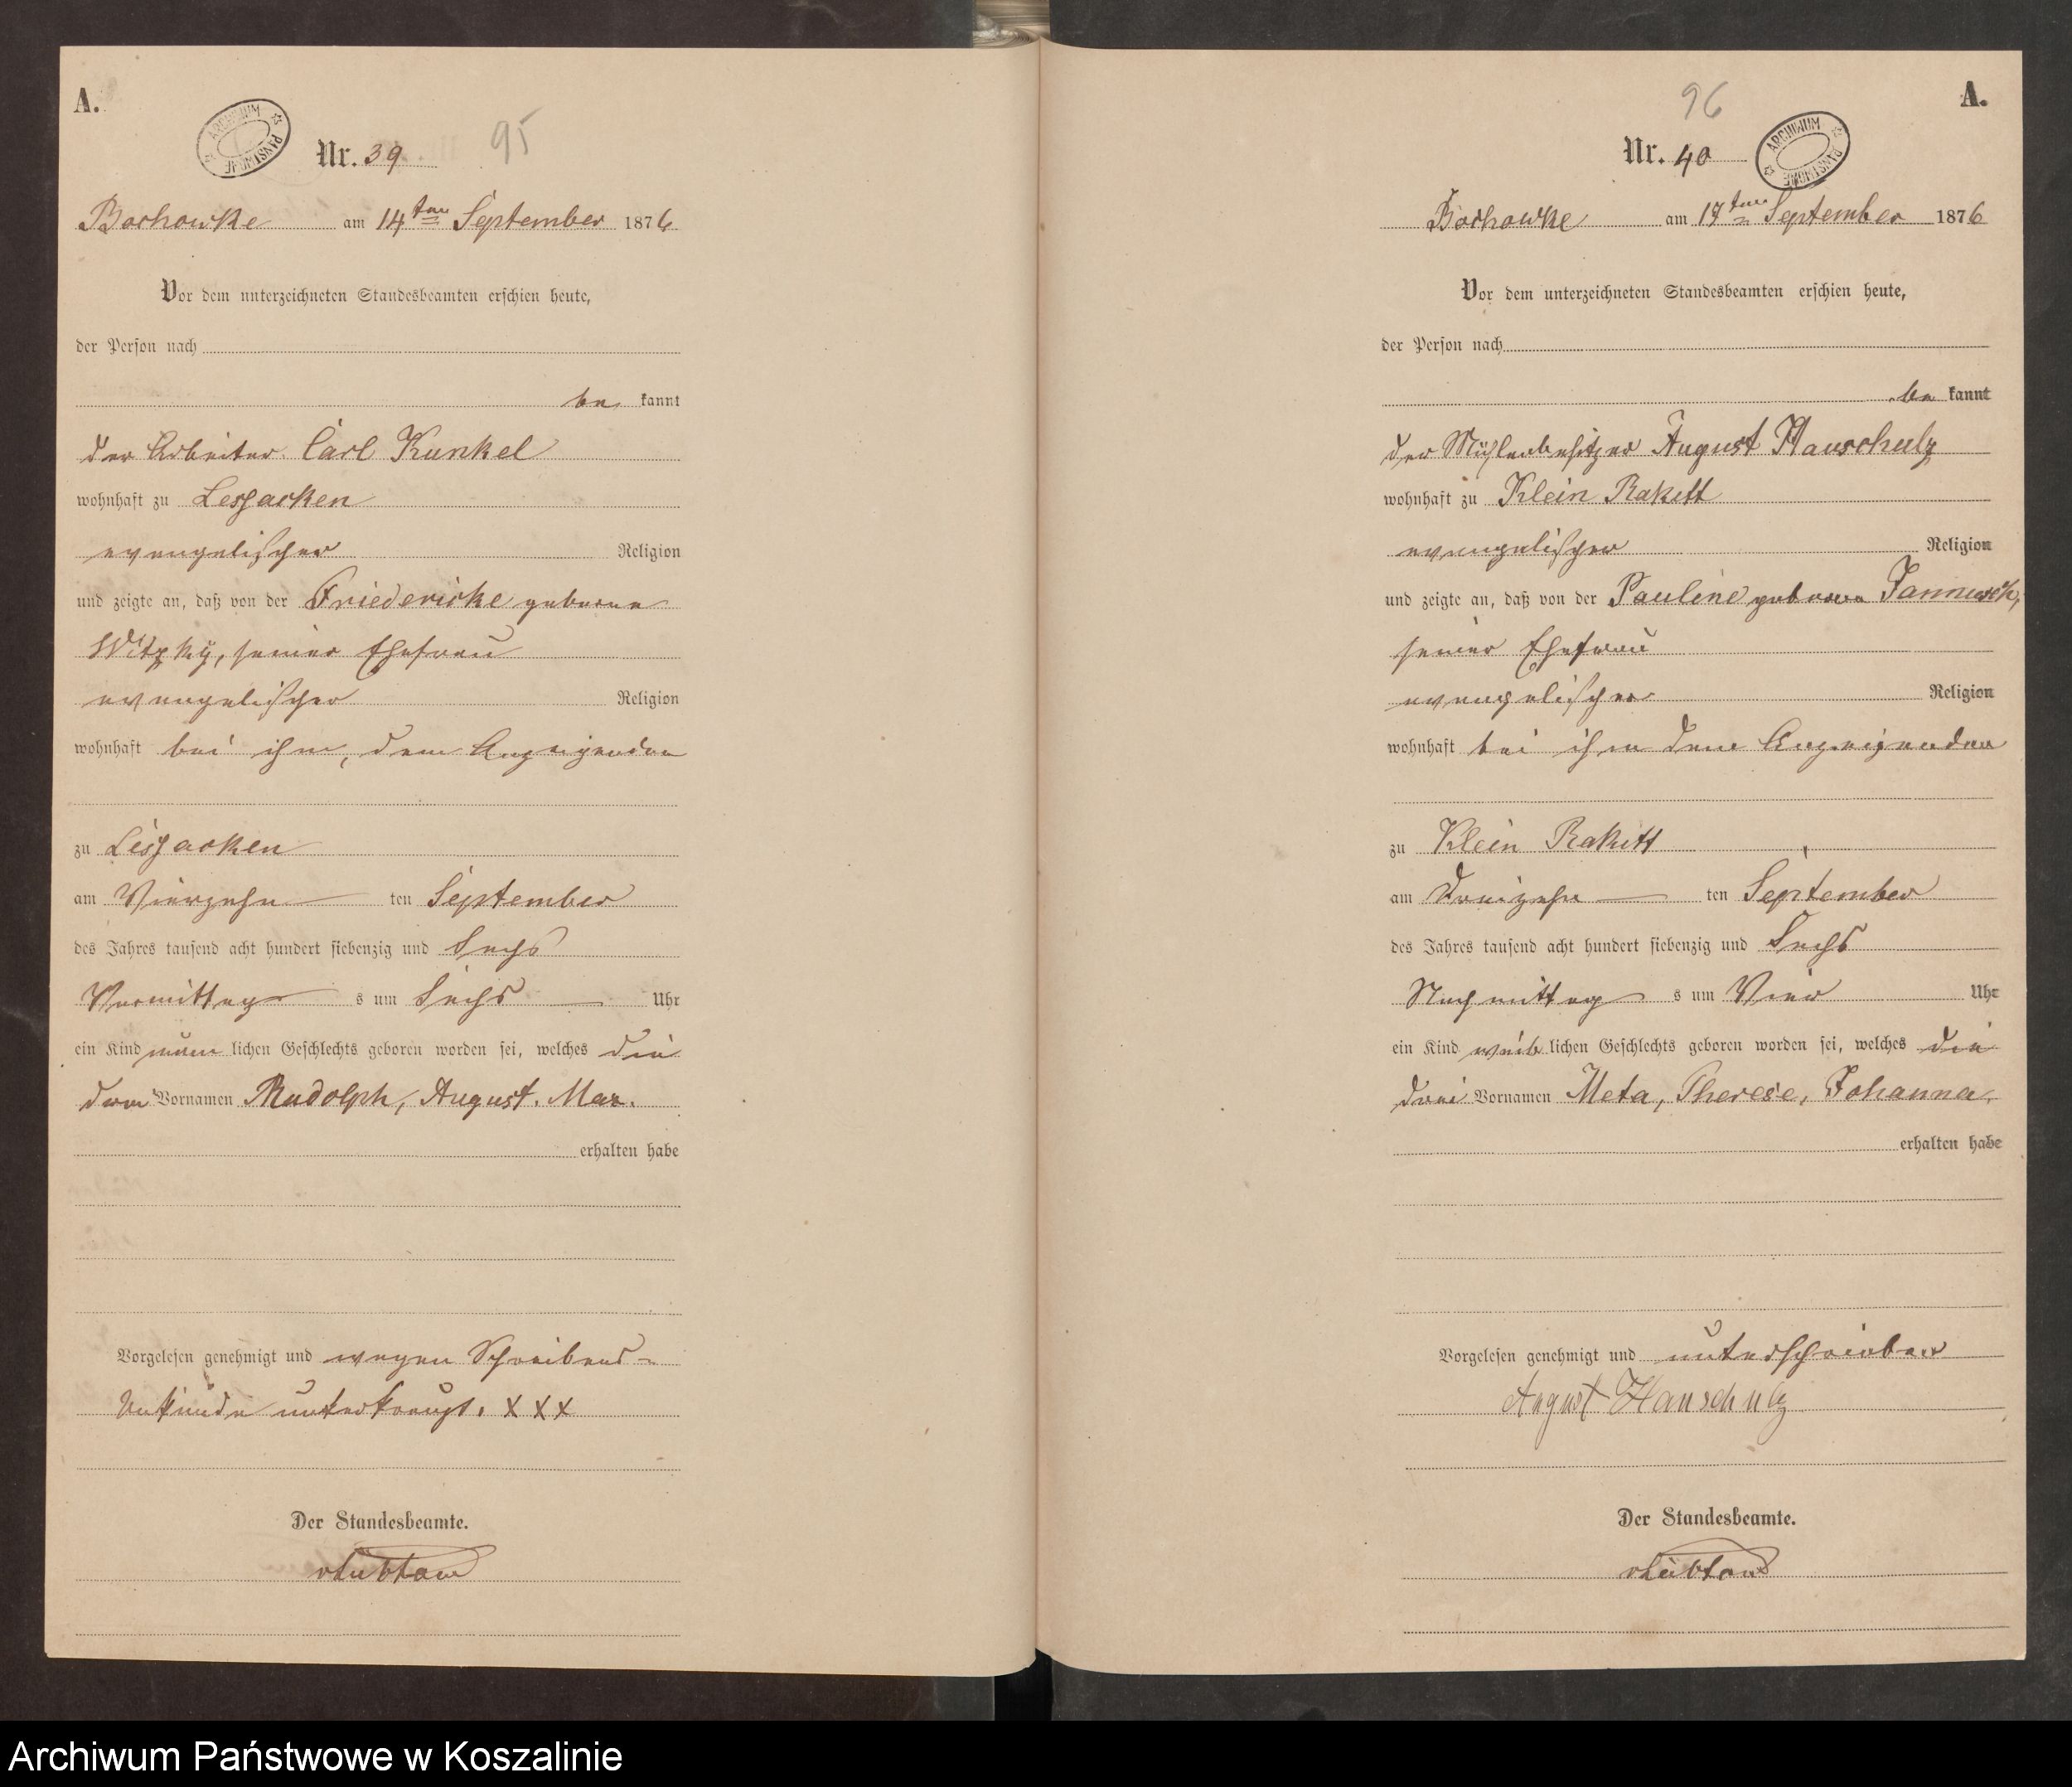 A.
ARCHIWUM PAŃSTWOWE
Nr. 39
95
Bochowke am 14ten September 1876
Vor dem unterzeichneten Standesbeamten erschien heute,
der Person nach
be kannt
der Arbeiter Carl Kunkel
wohnhaft zu Lessacken
evangelischer Religion
und zeigte an, daß von der Friedericke geborene
Witzky, seiner Ehefrau
evangelischer Religion
wohnhaft bei ihm, dem Anzeigenden
zu Lissacken
am Vierzehn ten September
des Jahres tausend acht hundert siebenzig und Sechs
Vormittag s um Sechs Uhr
ein Kind männ lichen Geschlechts geboren worden sei, welches die
drei Vornamen Rudolph, August. Max.
erhalten habe
Vorgelesen genehmigt und wegen Schreibens-
Unkunde unterkreuzt. X X X
Der Standesbeamte.
A.
96
Nr. 40
ARCHIWUM PAŃSTWOWE
Bochowke am 17ten September 1876
Vor dem unterzeichneten Standesbeamten erschien heute,
der Person nach
be kannt
der Mühlenbesitzer August Hauschulz
wohnhaft zu Klein Rakitt
evangelischer Religion
und zeigte an, daß von der Pauline geborene
seiner Ehefrau
evangelischer Religion
wohnhaft bei ihm dem Anzeigenden
zu Klein Rakitt
am Dreizehn ten September
des Jahres tausend acht hundert siebenzig und Sechs
Nachmittag s um Vier Uhr
ein Kind weib lichen Geschlechts geboren worden sei, welches die
drei Vornamen Meta, Therese, Johanna.
erhalten habe
Vorgelesen genehmigt und unterschrieben
August Hauschulz
Der Standesbeamte.
Archiwum Państwowe w Koszalinie